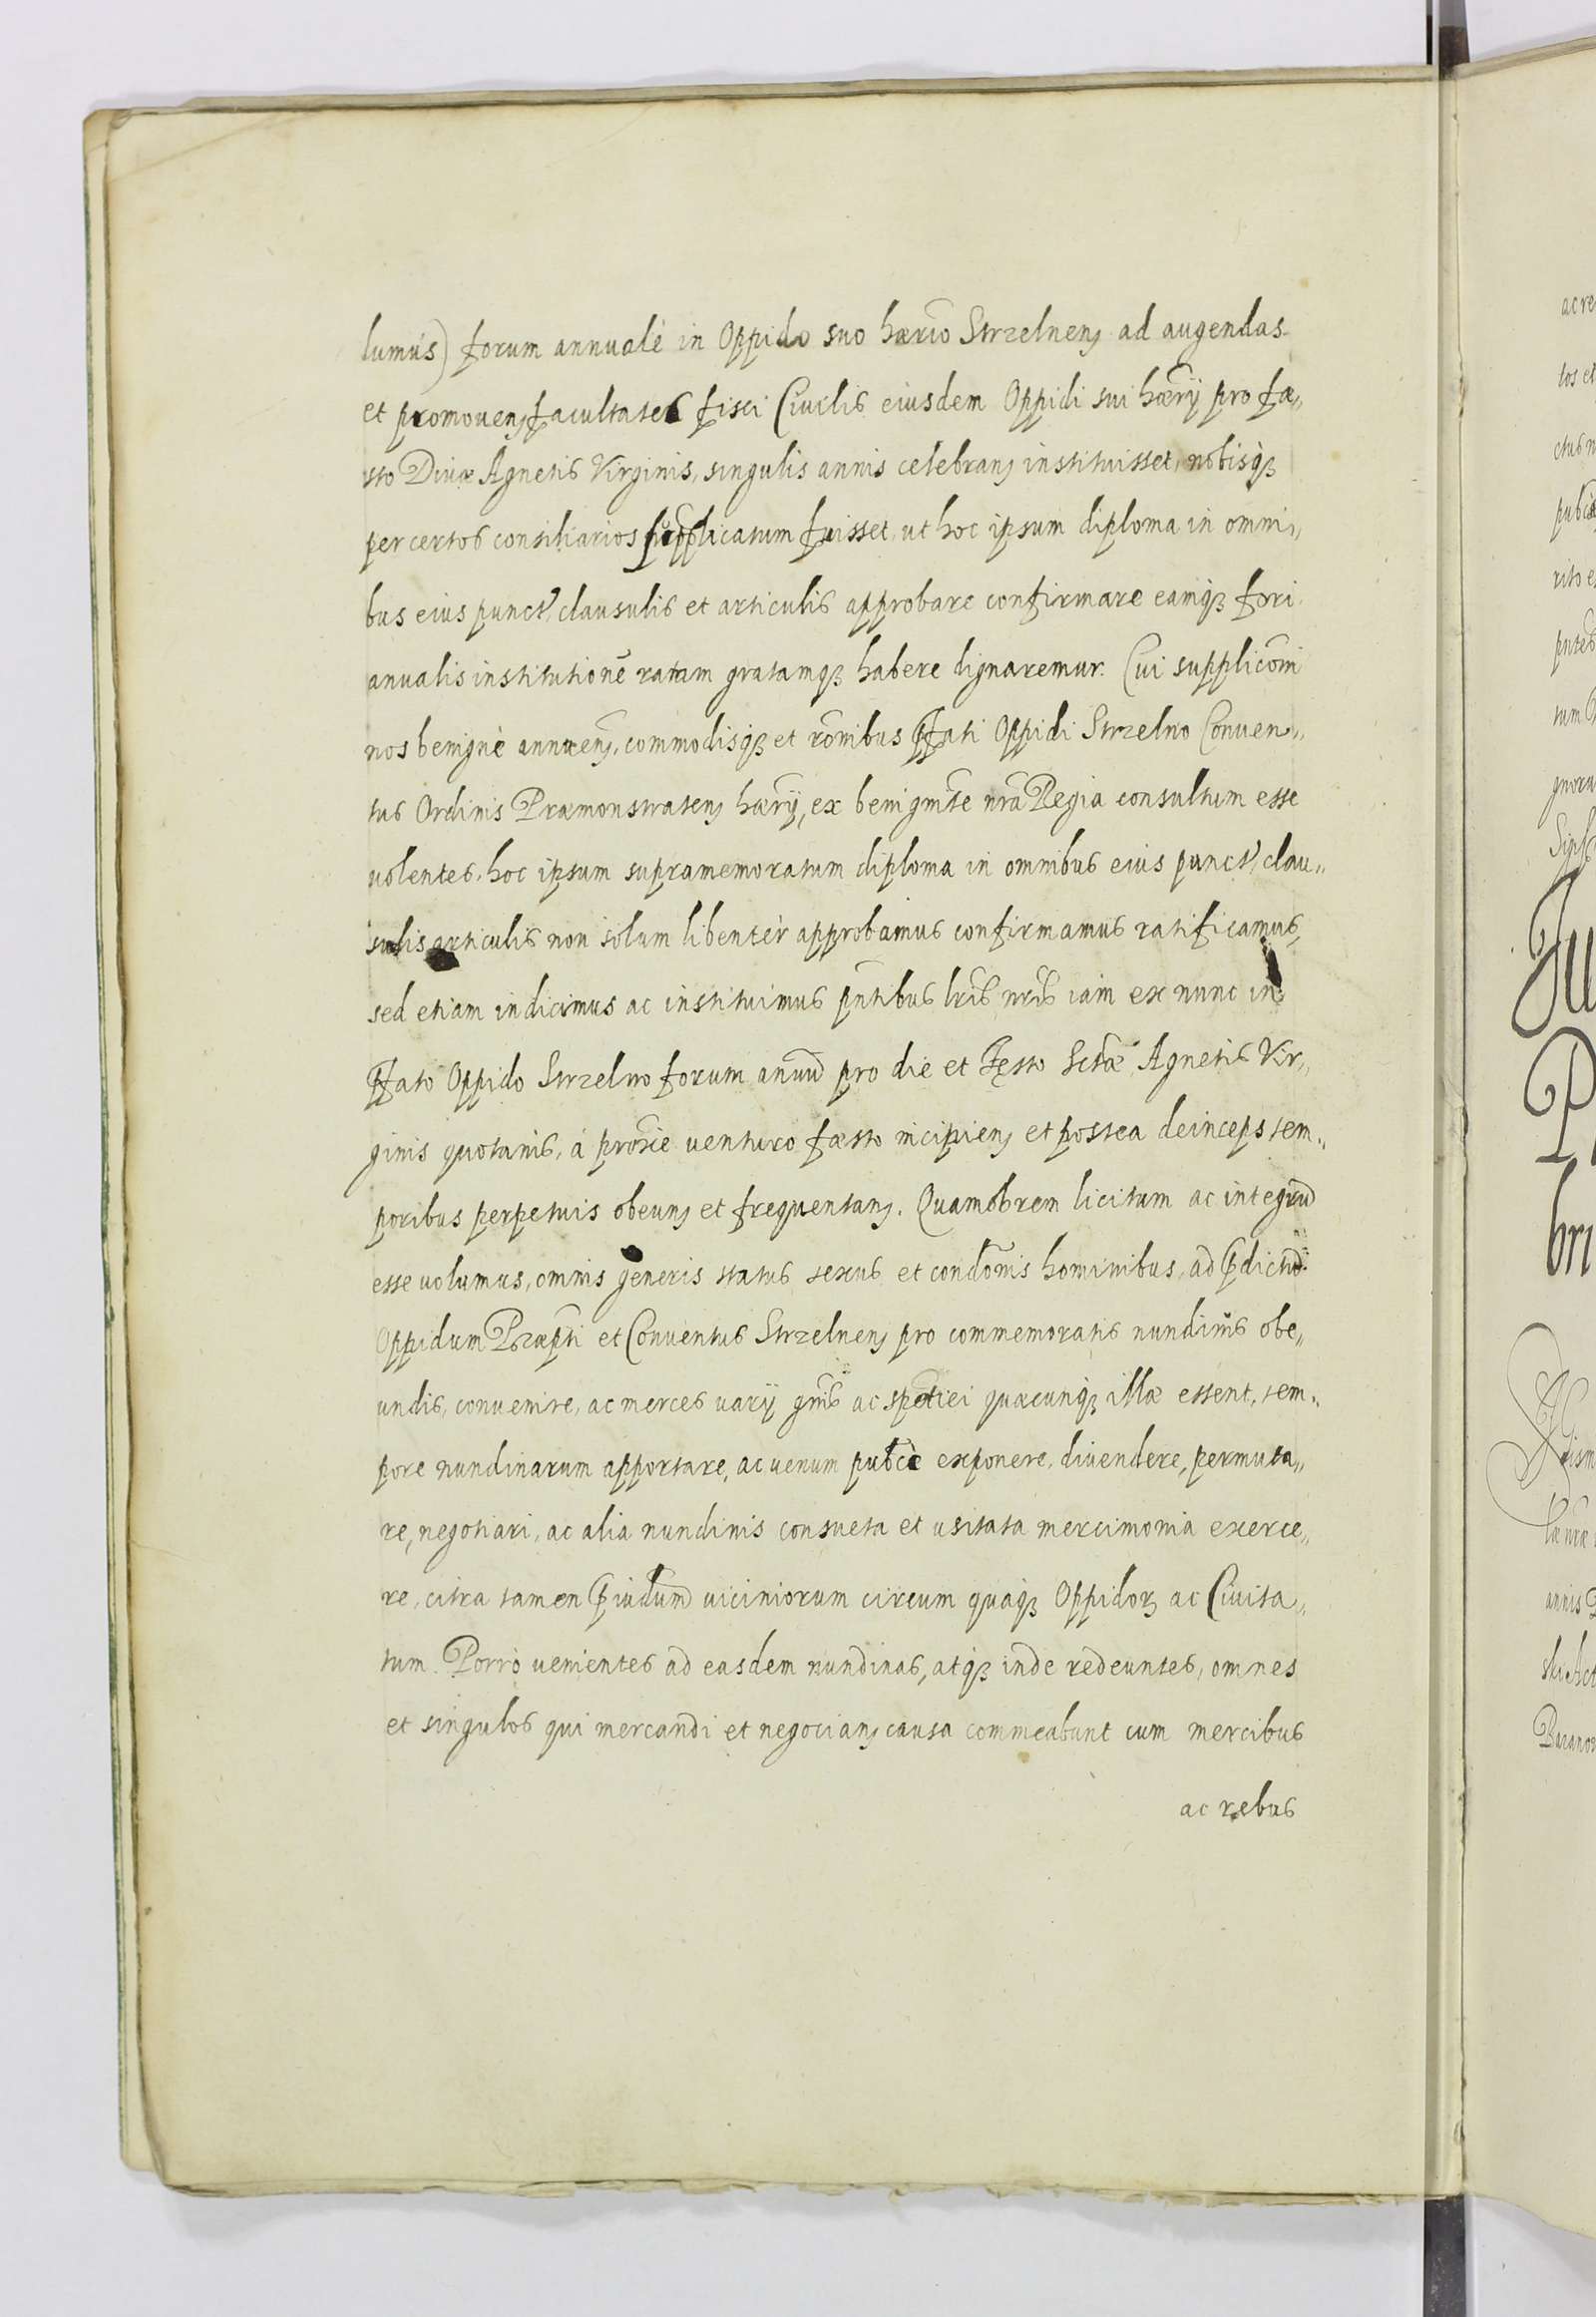 lumus) forum annualé in Oppido suo hærio Strzelnenȝ ad augendas
et promouenȝ facultates fisci Ciuilis eiusdem Oppidi sui hærij pro fæ„
sto Diuæ Agnetis Virginis, singulis annis celebranȝ instituisset, nobisqȝ
per certos consiliarios supplicatum fuisset, ut hoc ipsum diploma in omni„
bus eius punct, clausulis et articulis approbare confirmare eamqȝ fori
anualis institutionē ratam gratamqȝ habere dignaremur. Cui supplicōni
nos benignè annuenȝ, commodisqȝ et rōnibus Pfati Oppidi Strzelno Conuen„
tus Ordinis Præmonstratenȝ hærij, ex benignīte nrā Regia consultum esse
uolentes, hoc ipsum supramemoratum diploma in omnibus eius punct, clau„
sulis articulis non solum libentèr approbamus confirmamus ratificamus,
sed etiam indicimus ac instituimus pn̄tibus lr̄is nr̄is iam ex nunc in
Pfato Oppido Strzelno forum anuū pro die et Fęsto Sctæ Agnetis Vir„
ginis quotanis, á proxīe venturo fæsto incipienȝ et postea deinceps tem„
poribus perpetuis obeunȝ et frequentanȝ. Quamobrem licitum ac integrū
esse uolumus, omnis generis status sexus et condōnis hominibus, ad Pdictū
Oppidum Præpti et Conuentus Strzelnenȝ pro commemoratis nundinis obe„
undis, conuenire, ac merces varij gnīs ac spetiei quæcunqȝ illæ essent, tem„
pore nundinarum apportare, ac uenum pubcè exponere, diuendere, permuta„
re, negotiari, ac alia nundinis consueta et usitata mercimonia exerce„
re, citra tamen Piudium uiciniorum circum quaqȝ Oppidorȝ ac Ciuita„
tum. Porrò uenientes ad easdem nundinas, atqȝ inde redeuntes, omnes
et singulos qui mercandi et negocianȝ causa commeabunt cum mercibus
ac rebus